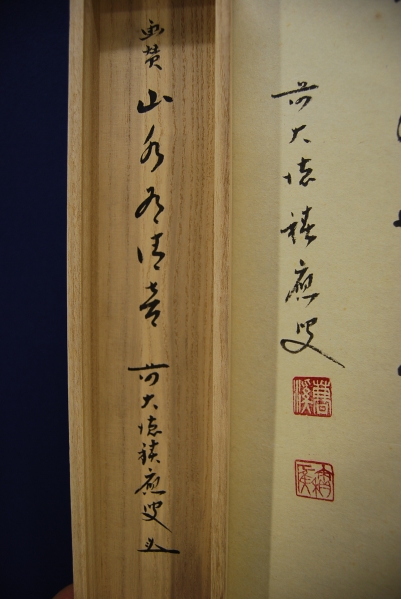 前大徳積應叟
画賛 山水有清音 前大徳積應叟